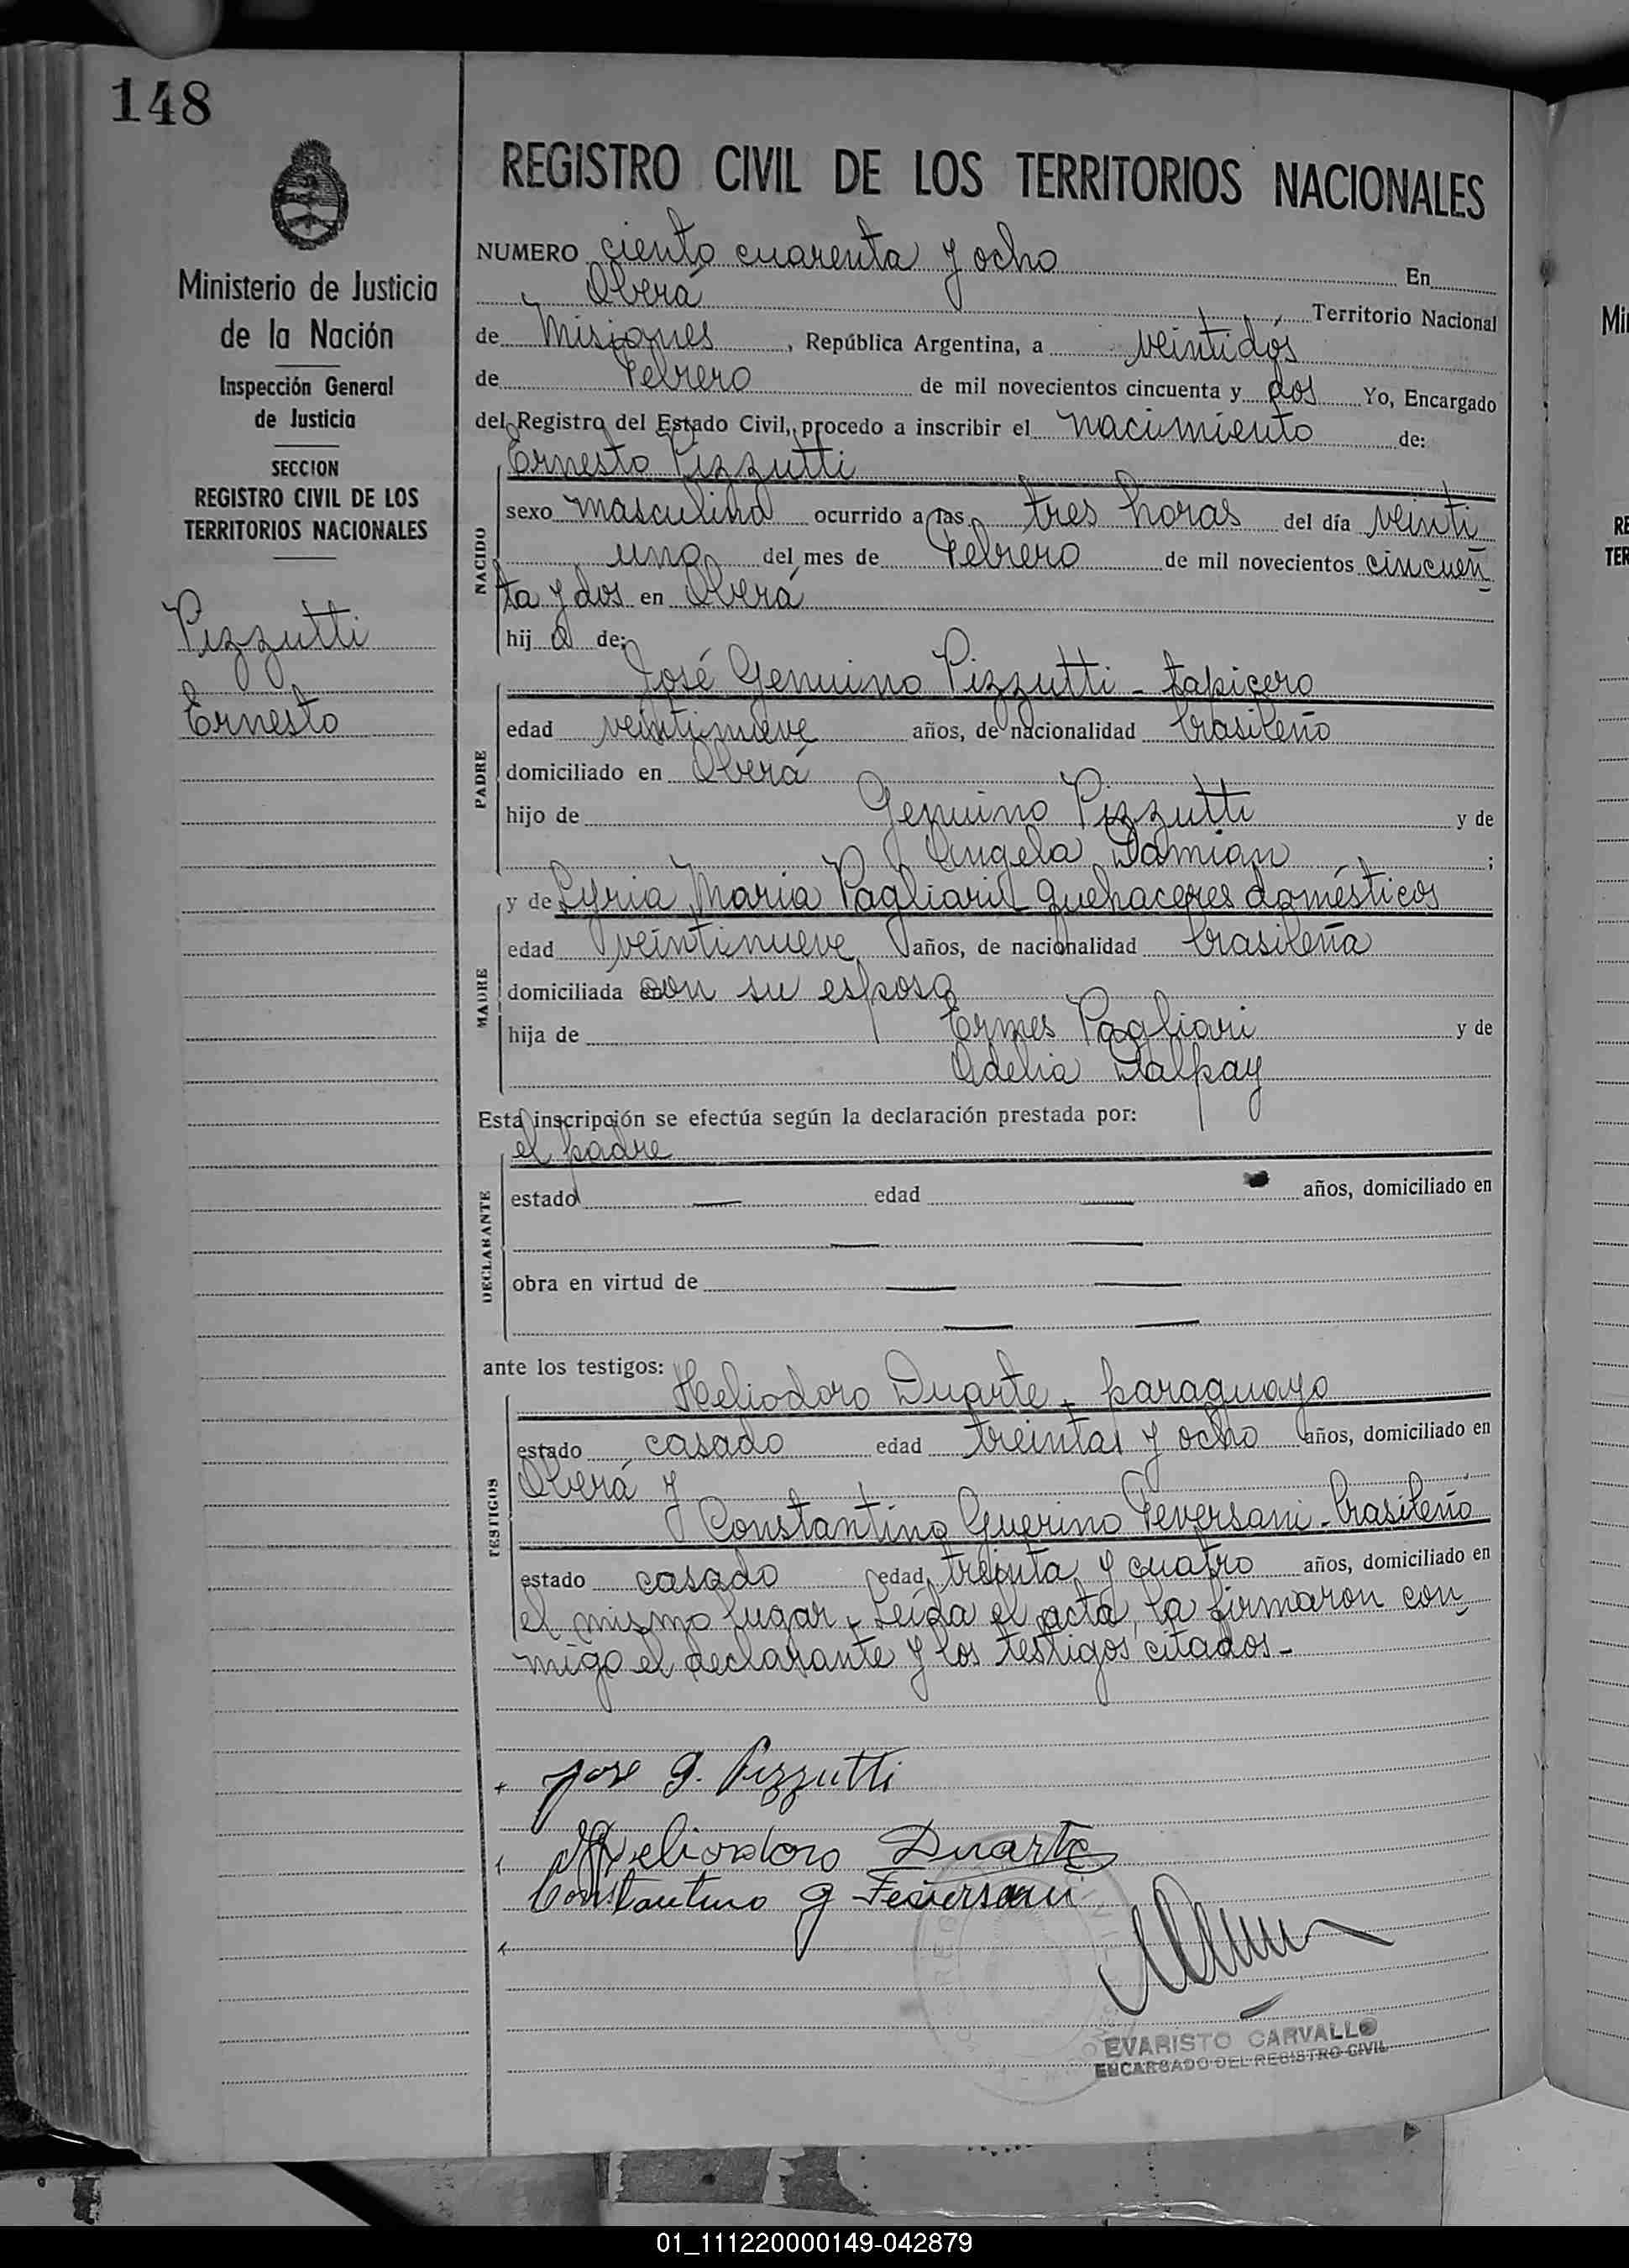 148
Ministerio de Justicia
de la Nación
Inspección General
de Justicia
SECCION
REGISTRO CIVIL DE LOS
TERRITORIOS NACIONALES
Pizzutti
Ernesto
REGISTRO CIVIL DE LOS TERRITORIOS NACIONALES
NUMERO ciento cuarenta y ocho En
Oberá Territorio Nacional
de Misiones, República Argentina, a veintidós
de Febrero de mil novecientos cincuenta y dos Yo, Encargado
del Registro del Estado Civil, procedo a inscribir el nacimiento de:
Ernesto Pizzutti
NACIDO
sexo masculino ocurrido a las tres horas del día veinti
uno del mes de Febrero de mil novecientos cincuen
ta y dos en Oberá
hij o de:
PADRE
José Genuino Pizzutti - tapicero
edad veintinueve años, de nacionalidad brasileño
domiciliado en Oberá
hijo de Genuino Pizzutti y de
Angela Damian ;
MADRE
y de Lyria Maria Pagliari - quehaceres domésticos
edad veintinueve años, de nacionalidad brasileña
domiciliada con su esposo
hija de Ermes Pagliari y de
Adelia Dalpay
Esta inscripción se efectúa según la declaración prestada por:
el padre
DECLARANTE
estado — edad — años, domiciliado en
— —
obra en virtud de — —
— —
ante los testigos:
TESTIGOS
Heliodoro Duarte - paraguayo
estado casado edad treinta y ocho años, domiciliado en
Oberá y
Constantino Guerino Feversani - brasileño
estado casado edad treinta y cuatro años, domiciliado en
el mismo lugar. Leída el acta, la firmaron con
migo el declarante y los testigos citados.-
Jose G. Pizzutti
Heliodoro Duarte
Constantino G Feversani
EVARISTO CARVALLO
ENCARGADO DEL REGISTRO CIVIL
Mi
RE
TER
01_111220000149-042879